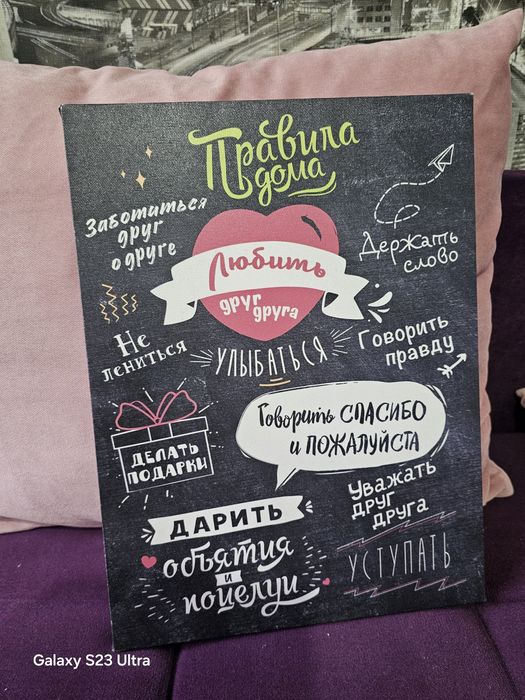 Правила
дома
Заботиться
друг
о друге
Держать
слово
Любить
друг
друга
Не
лениться
УЛЫБАТЬСЯ
Говорить
правду
ДЕЛАТЬ
ПОДАРКИ
Говорить СПАСИБО
и ПОЖАЛУЙСТА
Уважать
друг
друга
ДАРИТЬ
объятия
и
поцелуи
УСТУПАТЬ
Galaxy S23 Ultra